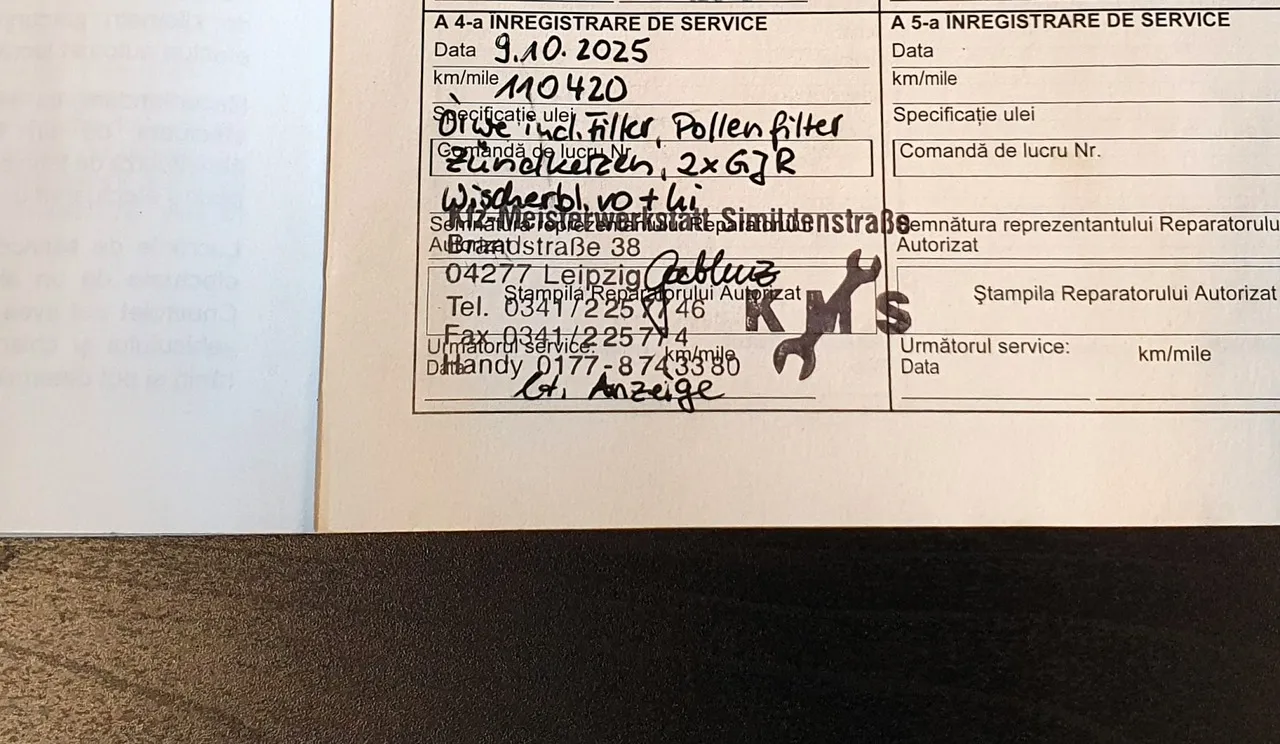 A 4-a ÎNREGISTRARE DE SERVICE
Data 9.10.2025
km/mile 110420
Specificaţie ulei
Ölwe incl. Filter, Pollenfilter
Comandă de lucru Nr.
Zündkerzen, 2x GJR
Wischerbl. vo + hi
Kfz-Meisterwerkstatt Simildenstraße
Semnătura reprezentantului Reparatorului
Autorizat
Brandstraße 38
04277 Leipzig
Ştampila Reparatorului Autorizat
Tel. 0341/225 46
KMS
Fax 0341/22577 4
Următorul service:
km/mile
Data
Handy 0177-8743380
lt. Anzeige
A 5-a ÎNREGISTRARE DE SERVICE
Data
km/mile
Specificaţie ulei
Comandă de lucru Nr.
Semnătura reprezentantului Reparatorulu
Autorizat
Ştampila Reparatorului Autorizat
Următorul service:
km/mile
Data